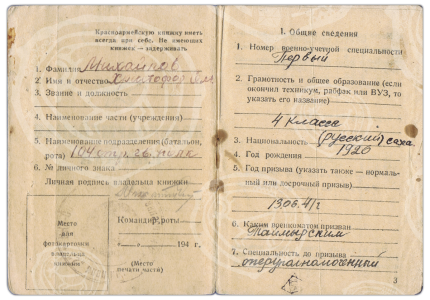 Красноармейскую книжку иметь
всегда при себе. Не имеющих
книжек — задерживать
1. Фамилия Михайлов
2. Имя и отчество
3. Звание и должность
4. Наименование части (учреждения)
5. Наименование подразделения (батальон,
рота)
6. № личного знака
Личная подпись владельца книжки
Место
для
фотокарточки
владельца
книжки
Командир роты
„ “ 194 г.
(Место
печати части)
I. Общие сведения
1. Номер военно-учетной специальности
Первый
2. Грамотность и общее образование (если
окончил техникум, рабфак или ВУЗ, то
указать его название)
4 класса
3. Национальность (русский) саха
4. Год рождения 1920
5. Год призыва (указать также — нормаль-
ный или досрочный призыв)
6. Каким военкоматом призван
Таймырским
7. Специальность до призыва
оперуполномоченный
3